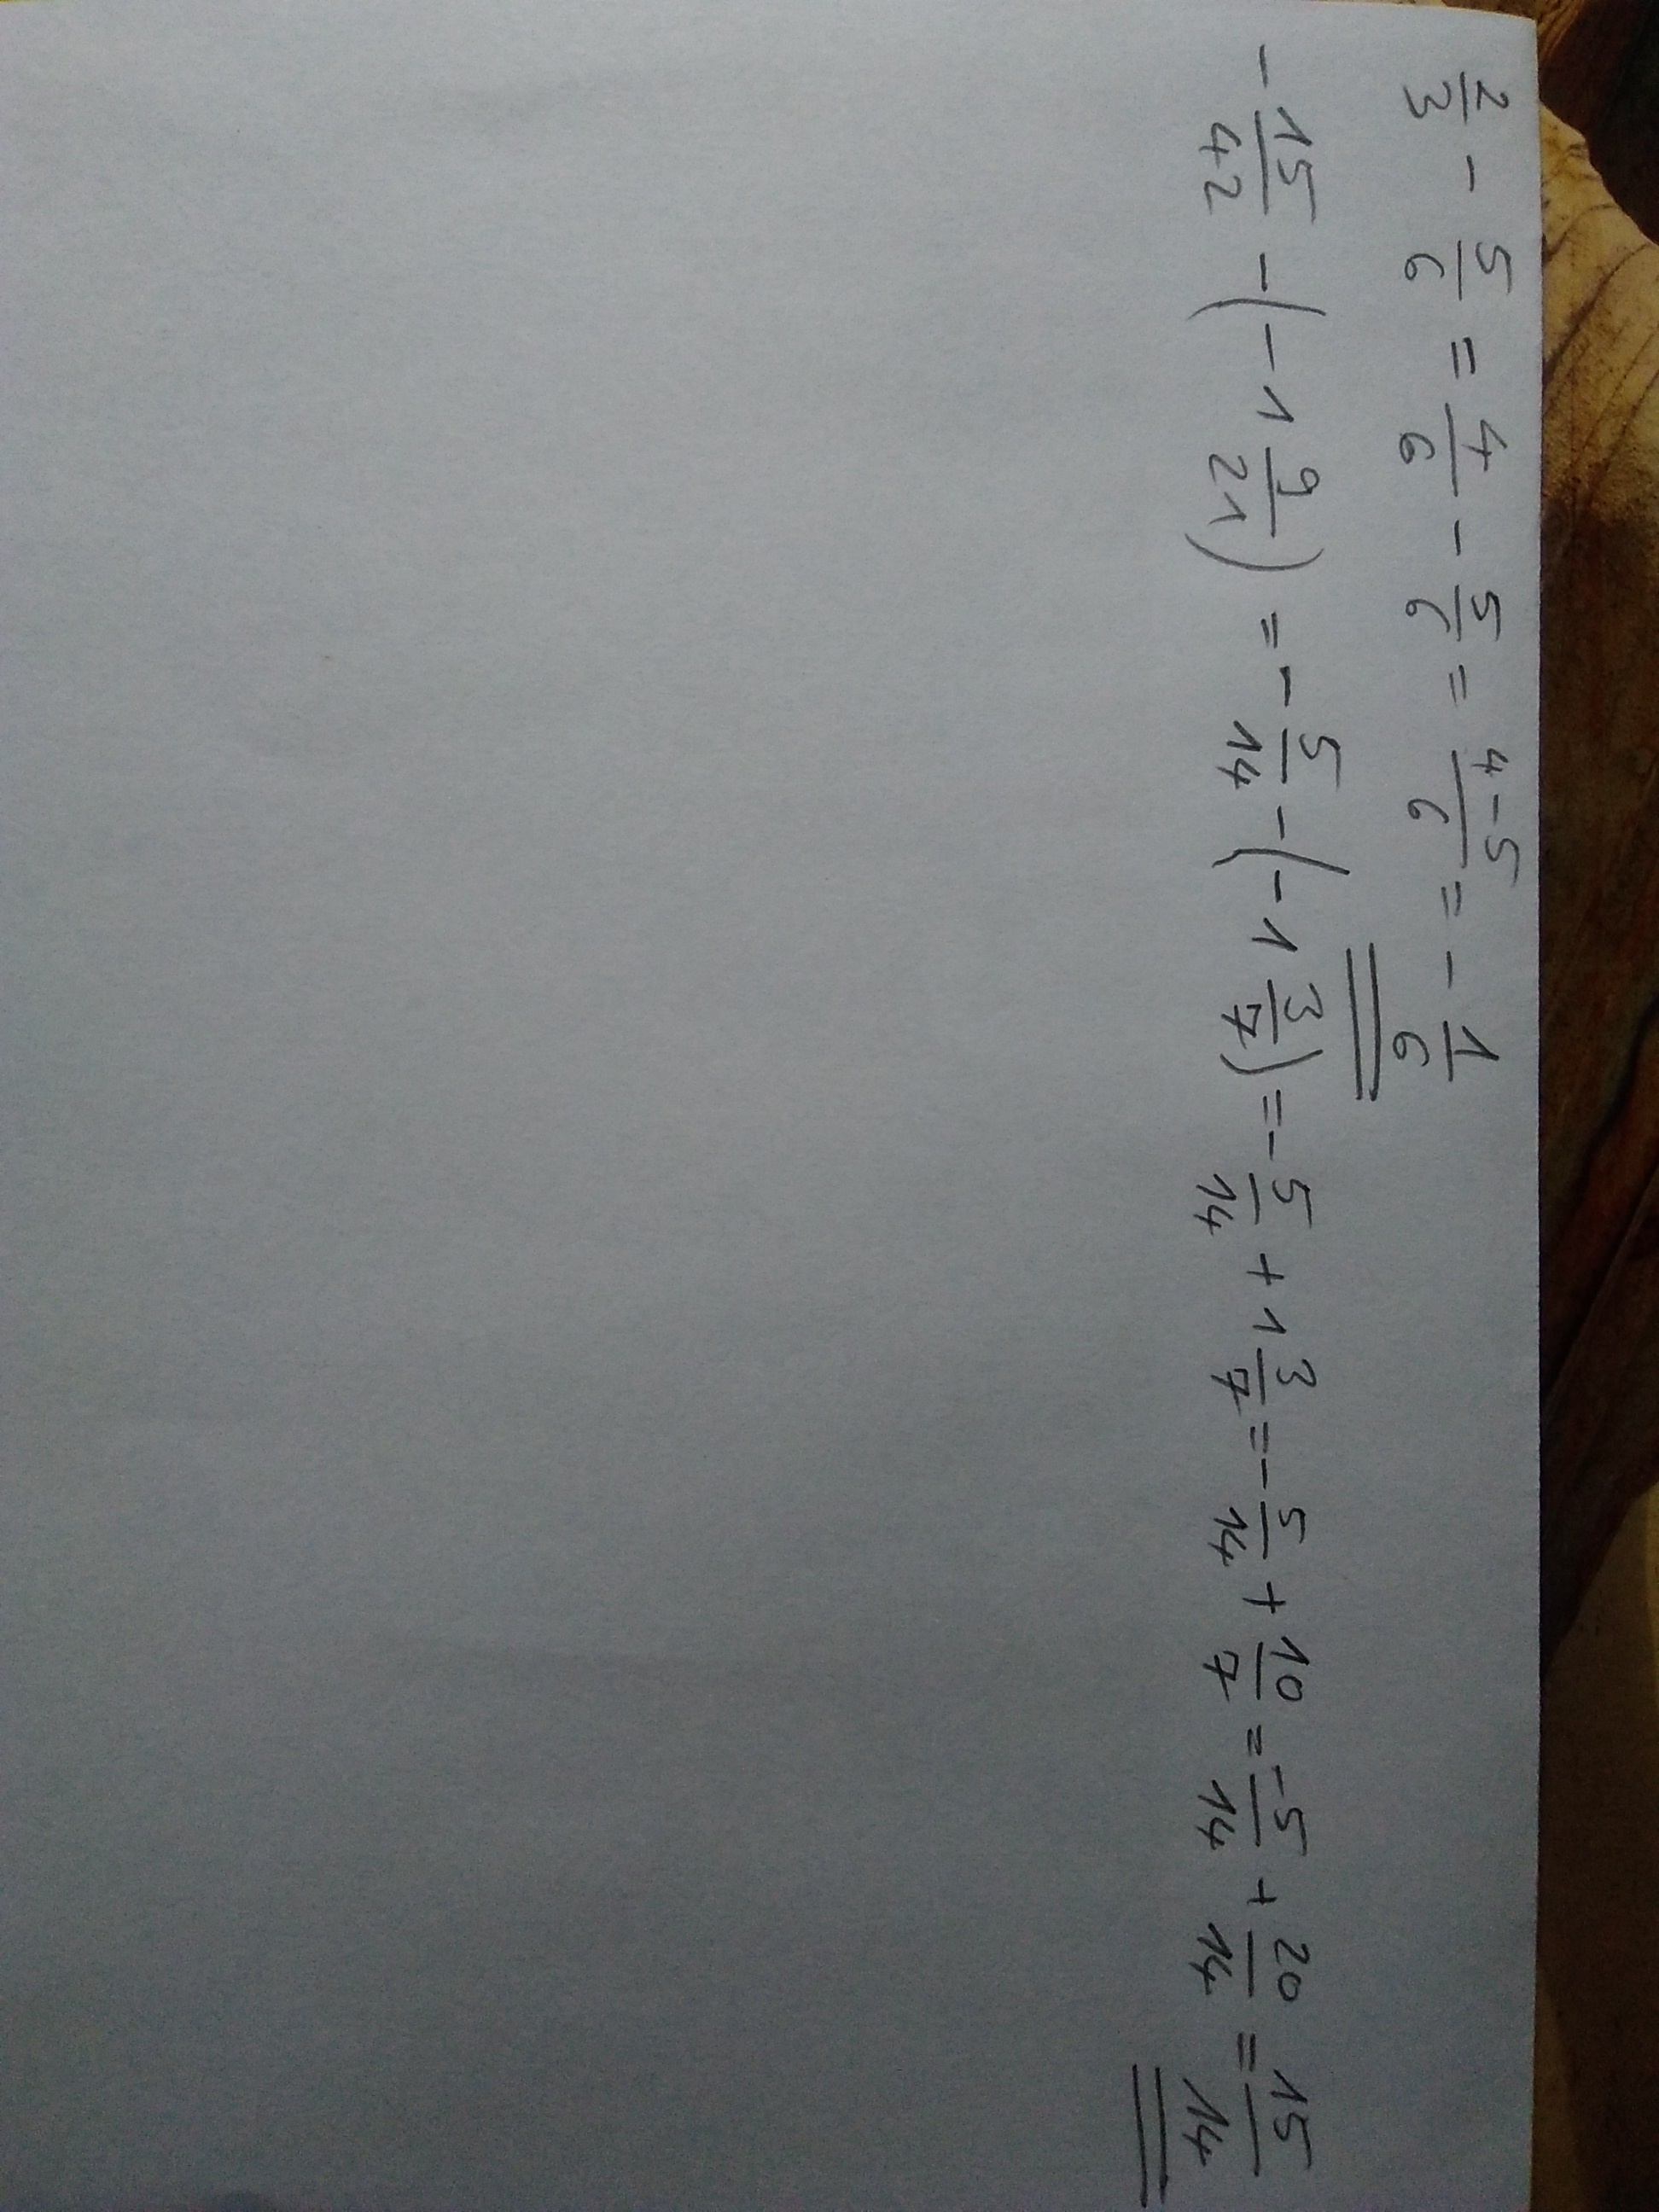 2/3 - 5/6 = 4/6 - 5/6 = 4-5/6 = - 1/6
- 15/42 - (- 1 9/21) = - 5/14 - (- 1 3/7) = - 5/14 + 1 3/7 = - 5/14 + 10/7 = -5/14 + 20/14 = 15/14